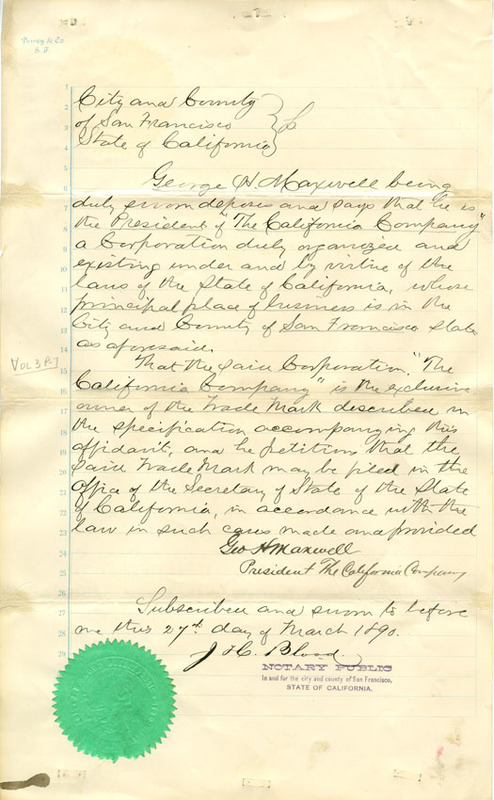 City and County
of San Francisco
State of California
George H. Maxwell being
duly sworn deposes and says that he is
the President of "The California Company"
a Corporation duly organized and
existing under and by virtue of the
laws of the State of California, whose
principal place of business is in the
City and County of San Francisco State
as aforesaid.
That the said Corporation, "The
California Company" is the exclusive
owner of the Trade Mark described in
the specification accompanying this
affidavit, and he petitions that the
said Trade Mark may be filed in the
office of the Secretary of State of the State
of California, in accordance with the
law in such cases made and provided
Geo H Maxwell
President The California Company
Subscribed and sworn to before
me this 27th day of March 1890.
J. H. Blood
NOTARY PUBLIC
In and for the city and county of San Francisco,
STATE OF CALIFORNIA.
VOL 3 P-7
1
2
3
4
5
6
7
8
9
10
11
12
13
14
15
16
17
18
19
20
21
22
23
24
25
26
27
28
29